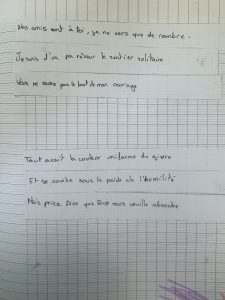 Nos amis sont à toi, je ne sers que de nombre.
Je suis d'un pas rêveur le sentier solitaire
Vous ne savez pas le bout de mon courage
Tout avait la couleur uniforme du givre
Et se couche sous le poids de l'humilité
Mais priez Dieu que tous nous veuille absoudre